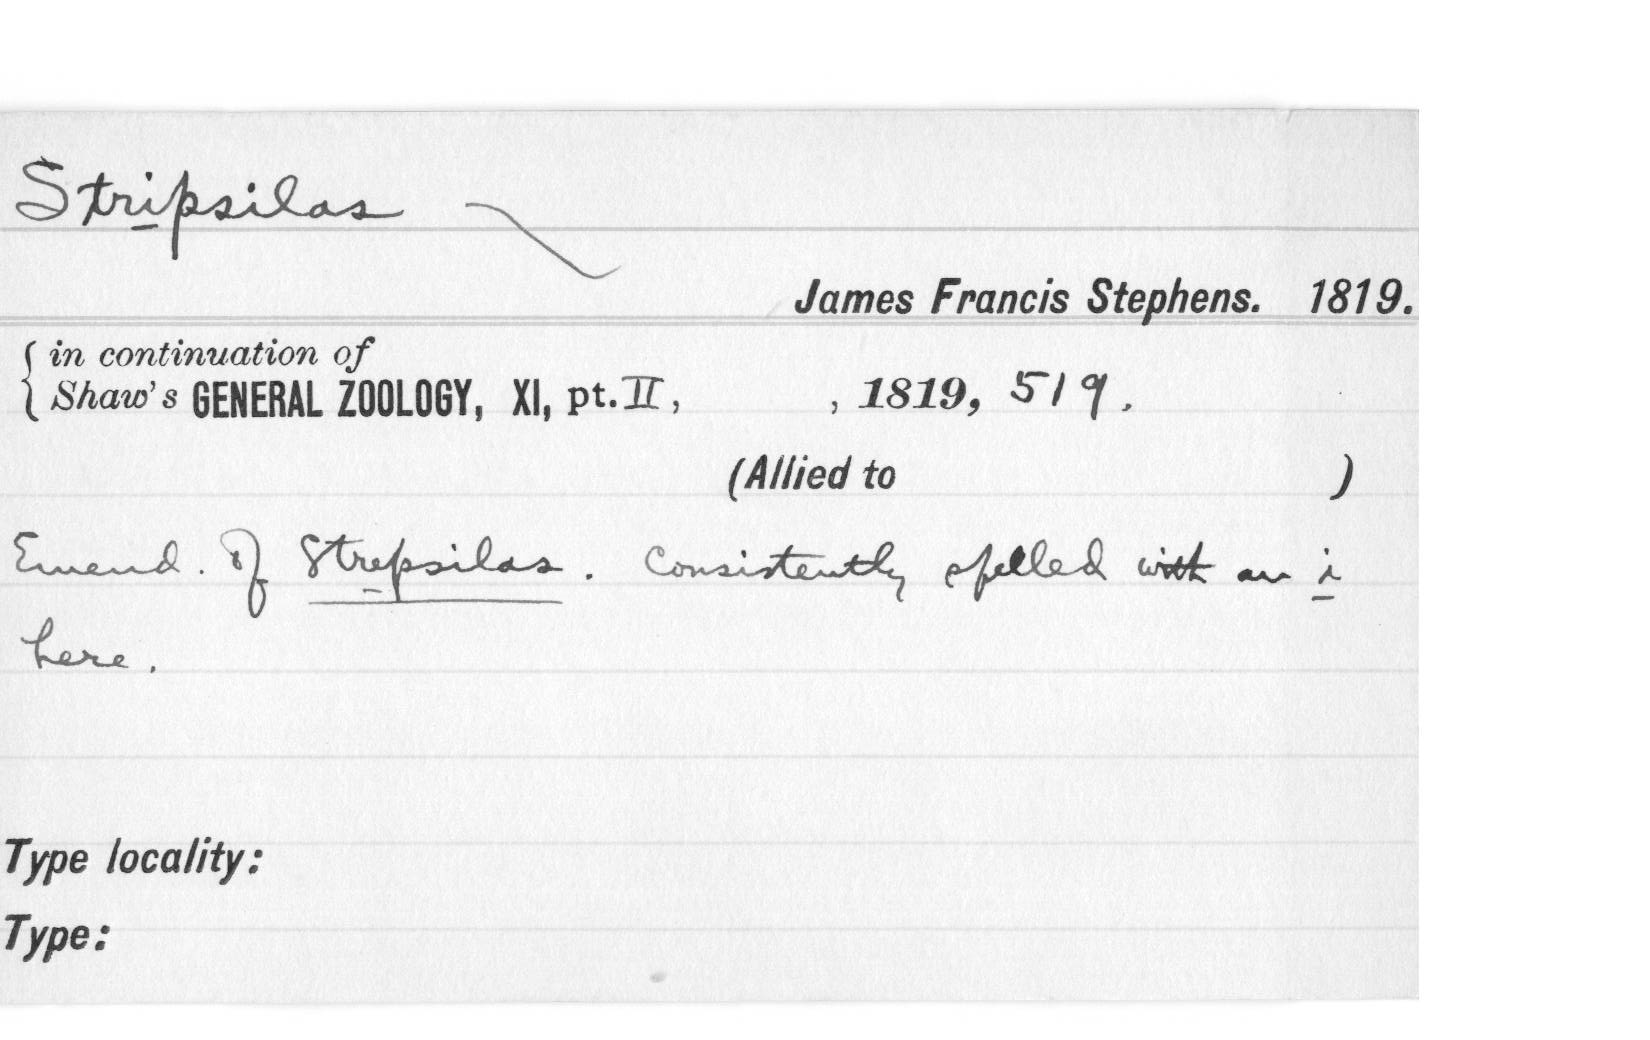 Stripsilas
James Francis Stephens. 1819.
in continuation of
Shaw's GENERAL ZOOLOGY, XI, pt. II, , 1819, 519.
(Allied to )
Emend. of Strepsilas. Consistently spelled with an i
here.
Type locality:
Type: